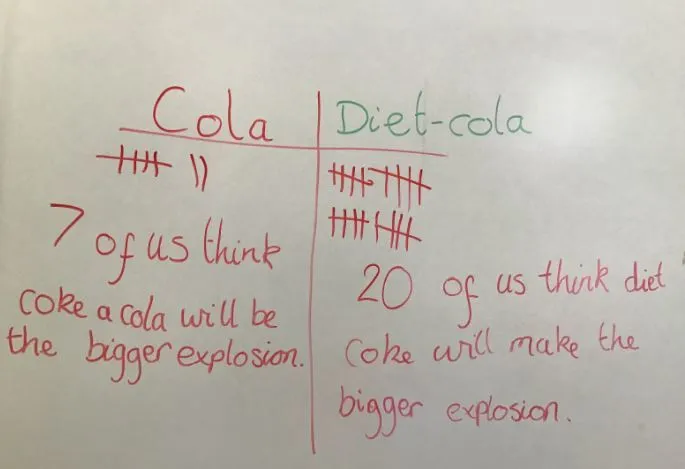 Cola
7 of us think
coke a cola will be
the bigger explosion.
Diet-cola
20 of us think diet
coke will make the
bigger explosion.